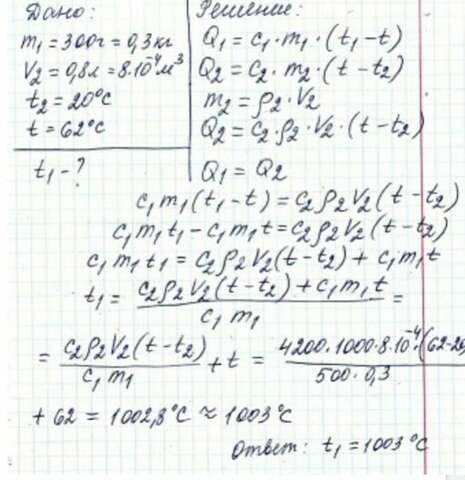 Дано:
m₁ = 300г = 0,3кг
V₂ = 0,8л = 8·10⁻⁴м³
t₂ = 20°C
t = 62°C
t₁ - ?
Решение:
Q₁ = c₁·m₁·(t₁-t)
Q₂ = c₂·m₂·(t-t₂)
m₂ = ρ₂·V₂
Q₂ = c₂·ρ₂·V₂·(t-t₂)
Q₁ = Q₂
c₁m₁(t₁-t) = c₂ρ₂V₂(t-t₂)
c₁m₁t₁ - c₁m₁t = c₂ρ₂V₂(t-t₂)
c₁m₁t₁ = c₂ρ₂V₂(t-t₂) + c₁m₁t
t₁ = (c₂ρ₂V₂(t-t₂) + c₁m₁t)/(c₁m₁) =
= (c₂ρ₂V₂(t-t₂))/(c₁m₁) + t = (4200·1000·8·10⁻⁴·(62-20)/(500·0,3)
+ 62 = 1002,8°C ≈ 1003°C
Ответ: t₁ = 1003°C